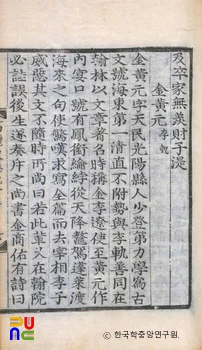 及卒家無羨財子湜
金黃元 李軌
金黃元字天民光陽縣人少登第力學爲古
文號海東第一清直不附勢與李軌善同在
翰林以文章著名時稱金李遼使至黃元作
內宴口號有鳳銜綸綍從天降鼇駕蓬萊渡
海來之句使驚嘆求寫全篇而去宰相李子
威惡其文不隨時所尚曰若此輩久在翰院
必詿誤後生遂奏斥之尚書金商佑有詩曰
© 한국학중앙연구원.